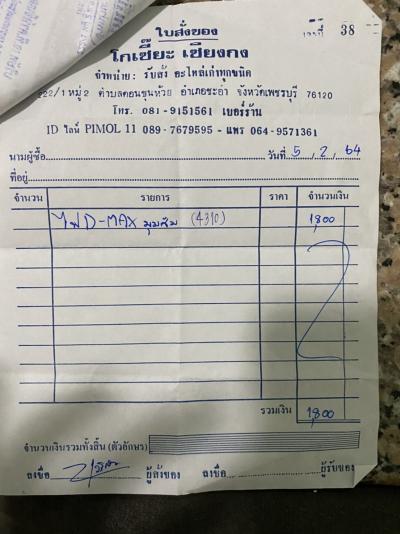 ใบสั่งของ
เล่มที่
เลขที่ 38
โกเซี๊ยะ เชียงกง
จำหน่าย : รับสั่ง อะไหล่เก่าทุกชนิด
222/1 หมู่ 2 ตำบลดอนขุนห้วย อำเภอชะอำ จังหวัดเพชรบุรี 76120
โทร. 081-9151561 เบอร์ร้าน
ID ไลน์ PIMOL 11 089-7679595 - แพร 064-9571361
นามผู้ซื้อ วันที่ 5 / 2 / 64
ที่อยู่
จำนวน รายการ ราคา จำนวนเงิน
ไฟ D-MAX มุมส้ม (4310) 1,800
รวมเงิน 1,800
จำนวนเงินรวมทั้งสิ้น (ตัวอักษร)
ลงชื่อ ผู้ส่งของ ลงชื่อ ผู้รับของ